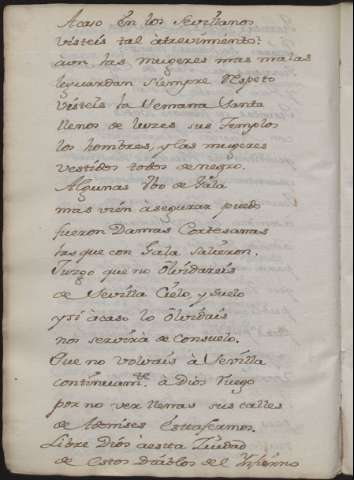 Acaso En los Sevillanos
visteis tal àtrevimiento:
àun, las mugeres mas malas
leguardan siempre Respeto
visteis la Semana Santa
llenos de luzes sus Templos
los hombres, y las mugeres
vestidos todos de negro.
Algunas Vbo de Gàla
mas vien àsegurar puedo
fueron Damas Cortesanas
las que con Gala salieron.
Juzgo que no Olvidareis
de Sevilla Cielo, y suelo
y si àcaso lo Olvidais
nos servirà de Consuelo.
Que no volvais à Sevilla
continuamte. à Dios ruego
por no ver llenas sus calles
de Ademises
Libre Dios àesta Ziudad
de estos Diablos del Infierno